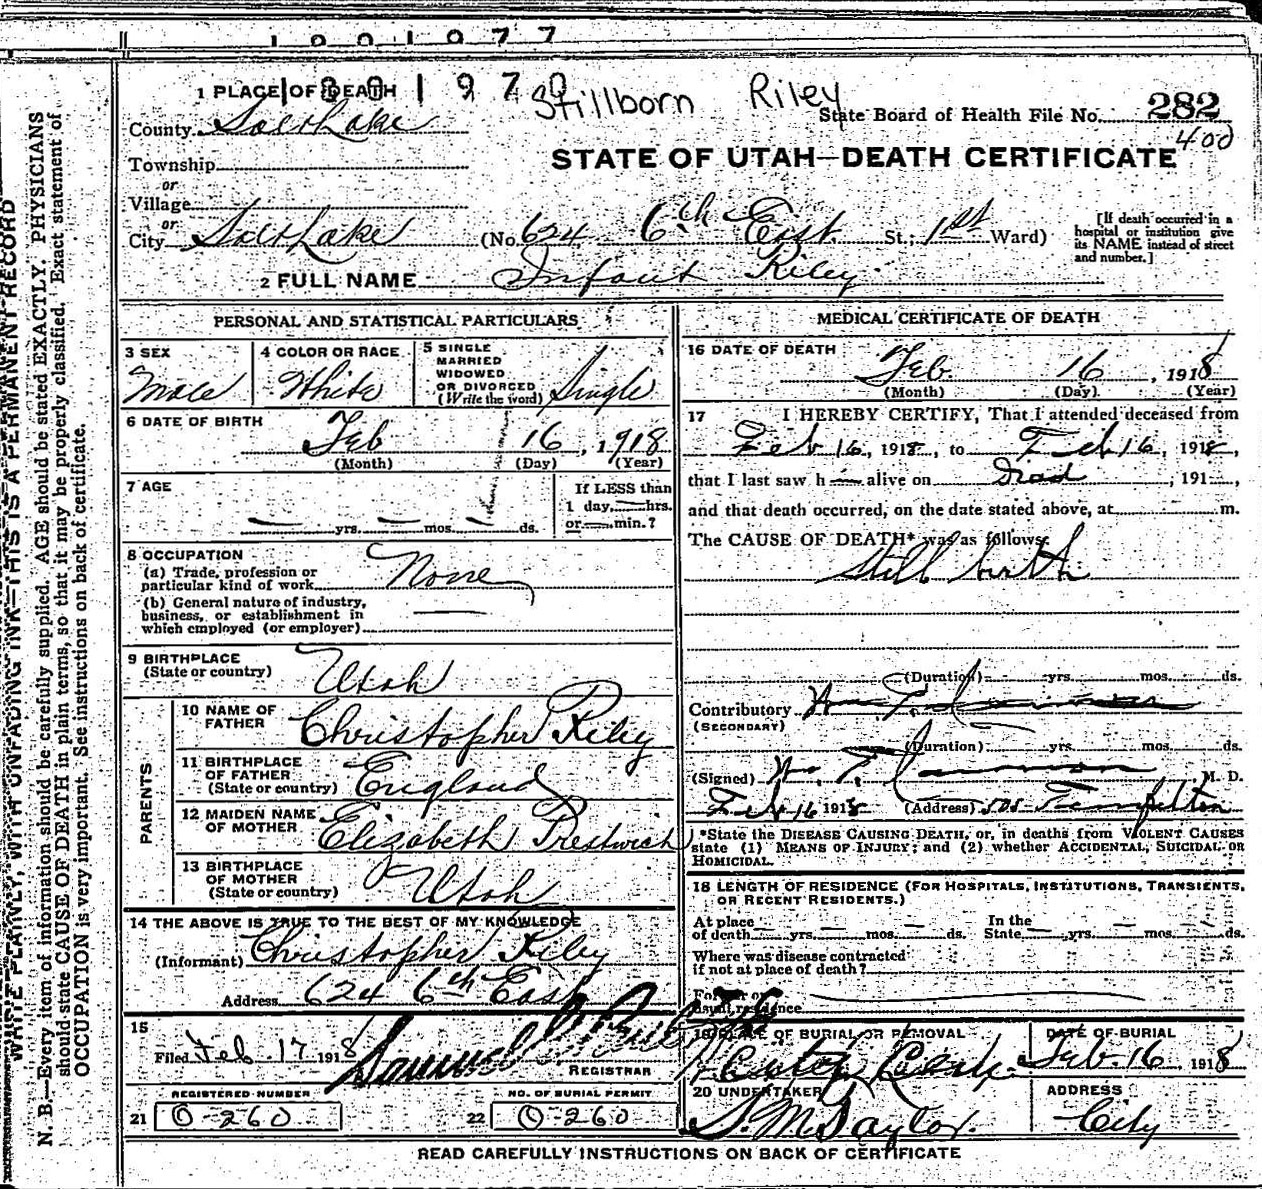 1001977
1 PLACE OF DEATH 1001970 Stillborn Riley
State Board of Health File No. 282
400
County Salt Lake
STATE OF UTAH—DEATH CERTIFICATE
Township
or
Village
or
City Salt Lake (No. 624 6th East St.; 1st Ward)
[If death occurred in a hospital or institution give its NAME instead of street and number.]
2 FULL NAME Infant Riley
PERSONAL AND STATISTICAL PARTICULARS
3 SEX
Male
4 COLOR OR RACE
White
5 SINGLE
MARRIED
WIDOWED
OR DIVORCED
(Write the word) Single
6 DATE OF BIRTH
Feb 16, 1918
(Month) (Day) (Year)
7 AGE
— yrs. — mos. — ds.
If LESS than
1 day, — hrs.
or — min.?
8 OCCUPATION
(a) Trade, profession or
particular kind of work None
(b) General nature of industry,
business, or establishment in
which employed (or employer)
9 BIRTHPLACE
(State or country) Utah
PARENTS
10 NAME OF
FATHER Christopher Riley
11 BIRTHPLACE
OF FATHER
(State or country) England
12 MAIDEN NAME
OF MOTHER Elizabeth Prestwich
13 BIRTHPLACE
OF MOTHER
(State or country) Utah
14 THE ABOVE IS TRUE TO THE BEST OF MY KNOWLEDGE
(Informant) Christopher Riley
Address 624 6th East
15
Filed Feb 17 1918 Samuel G.
REGISTRAR
REGISTERED NUMBER
21 O-260
NO. OF BURIAL PERMIT
22 O-260
MEDICAL CERTIFICATE OF DEATH
16 DATE OF DEATH
Feb. 16, 1918
(Month) (Day) (Year)
17 I HEREBY CERTIFY, That I attended deceased from
Feb 16, 1918, to Feb 16, 1918,
that I last saw h— alive on Diad, 191—,
and that death occurred, on the date stated above, at m.
The CAUSE OF DEATH* was as follows:
Still birth
(Duration) yrs. mos. ds.
Contributory Wm. T.
(SECONDARY)
(Duration) yrs. mos. ds.
(Signed) Wm. T. M. D.
Feb 16 1918 (Address) Templeton
*State the DISEASE CAUSING DEATH, or, in deaths from VIOLENT CAUSES
state (1) MEANS OF INJURY; and (2) whether ACCIDENTAL, SUICIDAL OR
HOMICIDAL.
18 LENGTH OF RESIDENCE (FOR HOSPITALS, INSTITUTIONS, TRANSIENTS,
OR RECENT RESIDENTS.)
At place
of death — yrs. — mos. — ds. In the
State — yrs. — mos. — ds.
Where was disease contracted
if not at place of death?
Former or
usual residence
19 PLACE OF BURIAL OR REMOVAL
City Cem.
DATE OF BURIAL
Feb. 16, 1918
20 UNDERTAKER
S. M. Taylor.
ADDRESS
City
READ CAREFULLY INSTRUCTIONS ON BACK OF CERTIFICATE
WRITE PLAINLY, WITH UNFADING INK—THIS IS A PERMANENT RECORD
N. B.—Every item of information should be carefully supplied. AGE should be stated EXACTLY. PHYSICIANS
should state CAUSE OF DEATH in plain terms, so that it may be properly classified. Exact statement of
OCCUPATION is very important. See instructions on back of certificate.